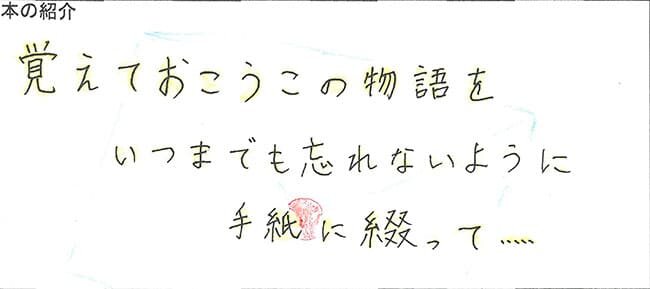 本の紹介
覚えておこうこの物語を
いつまでも忘れないように
手紙に綴って……